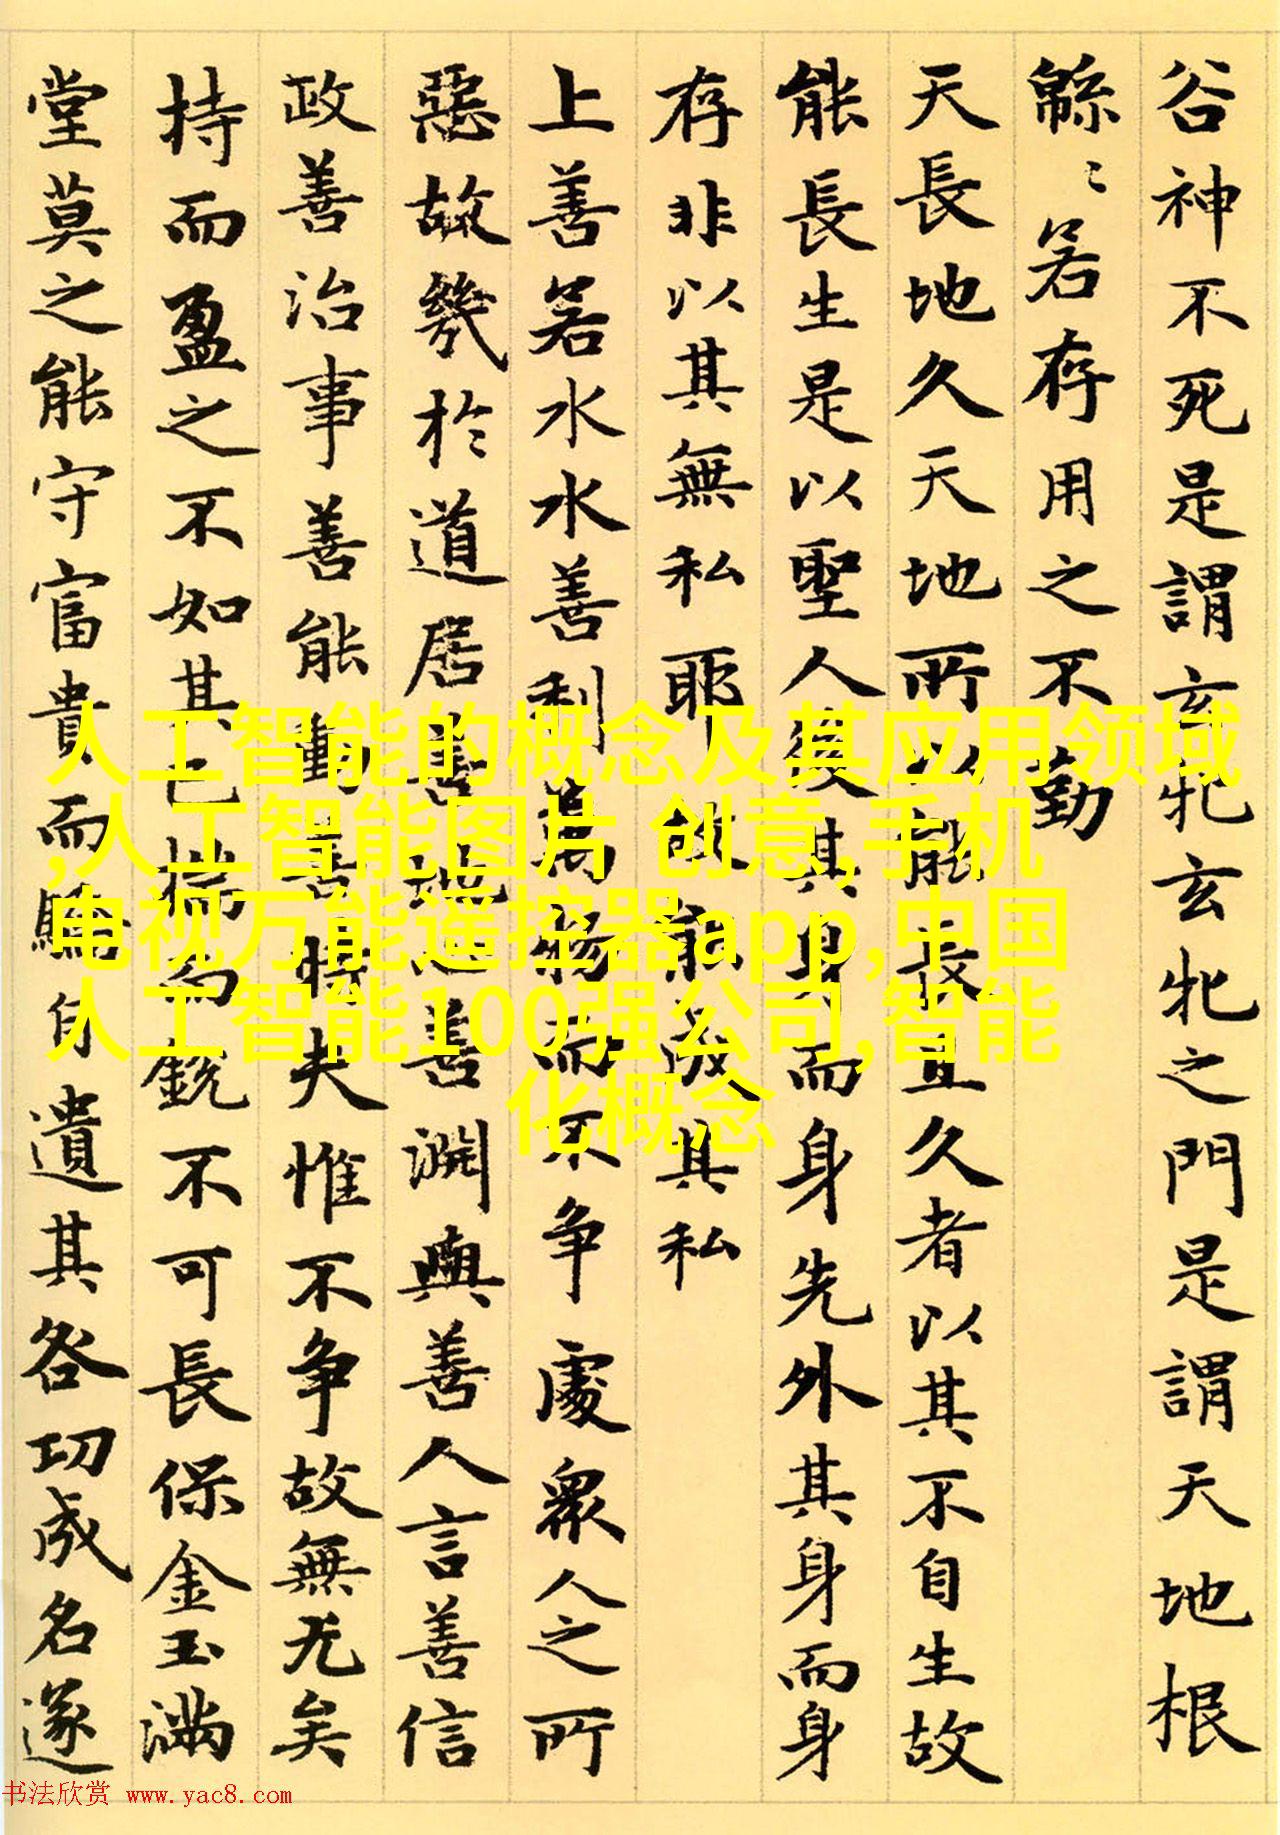 谷神不死是謂玄牝玄牝之門是謂天地根
緜〻若存用之不勤
天長地久天地所以能長且久者以其不自生故
能長生是以聖人後其身而身先外其身而身
存非以其無私耶故能成其私
上善若水水善利萬物而不争處衆人之所
惡故幾於道居善地心善淵與善人言善信
政善治事善能動善時夫惟不争故無尤矣
持而盈之不如其已揣銳不可長保金玉滿
堂莫之能守富貴而驕自遺其咎功成名遂
人工智能的概念及其应用领域
,人工智能图片 创意,手机
电视万能遥控器app,中国
人工智能100强公司,智能
化概念
书法欣赏 www.yac8.com